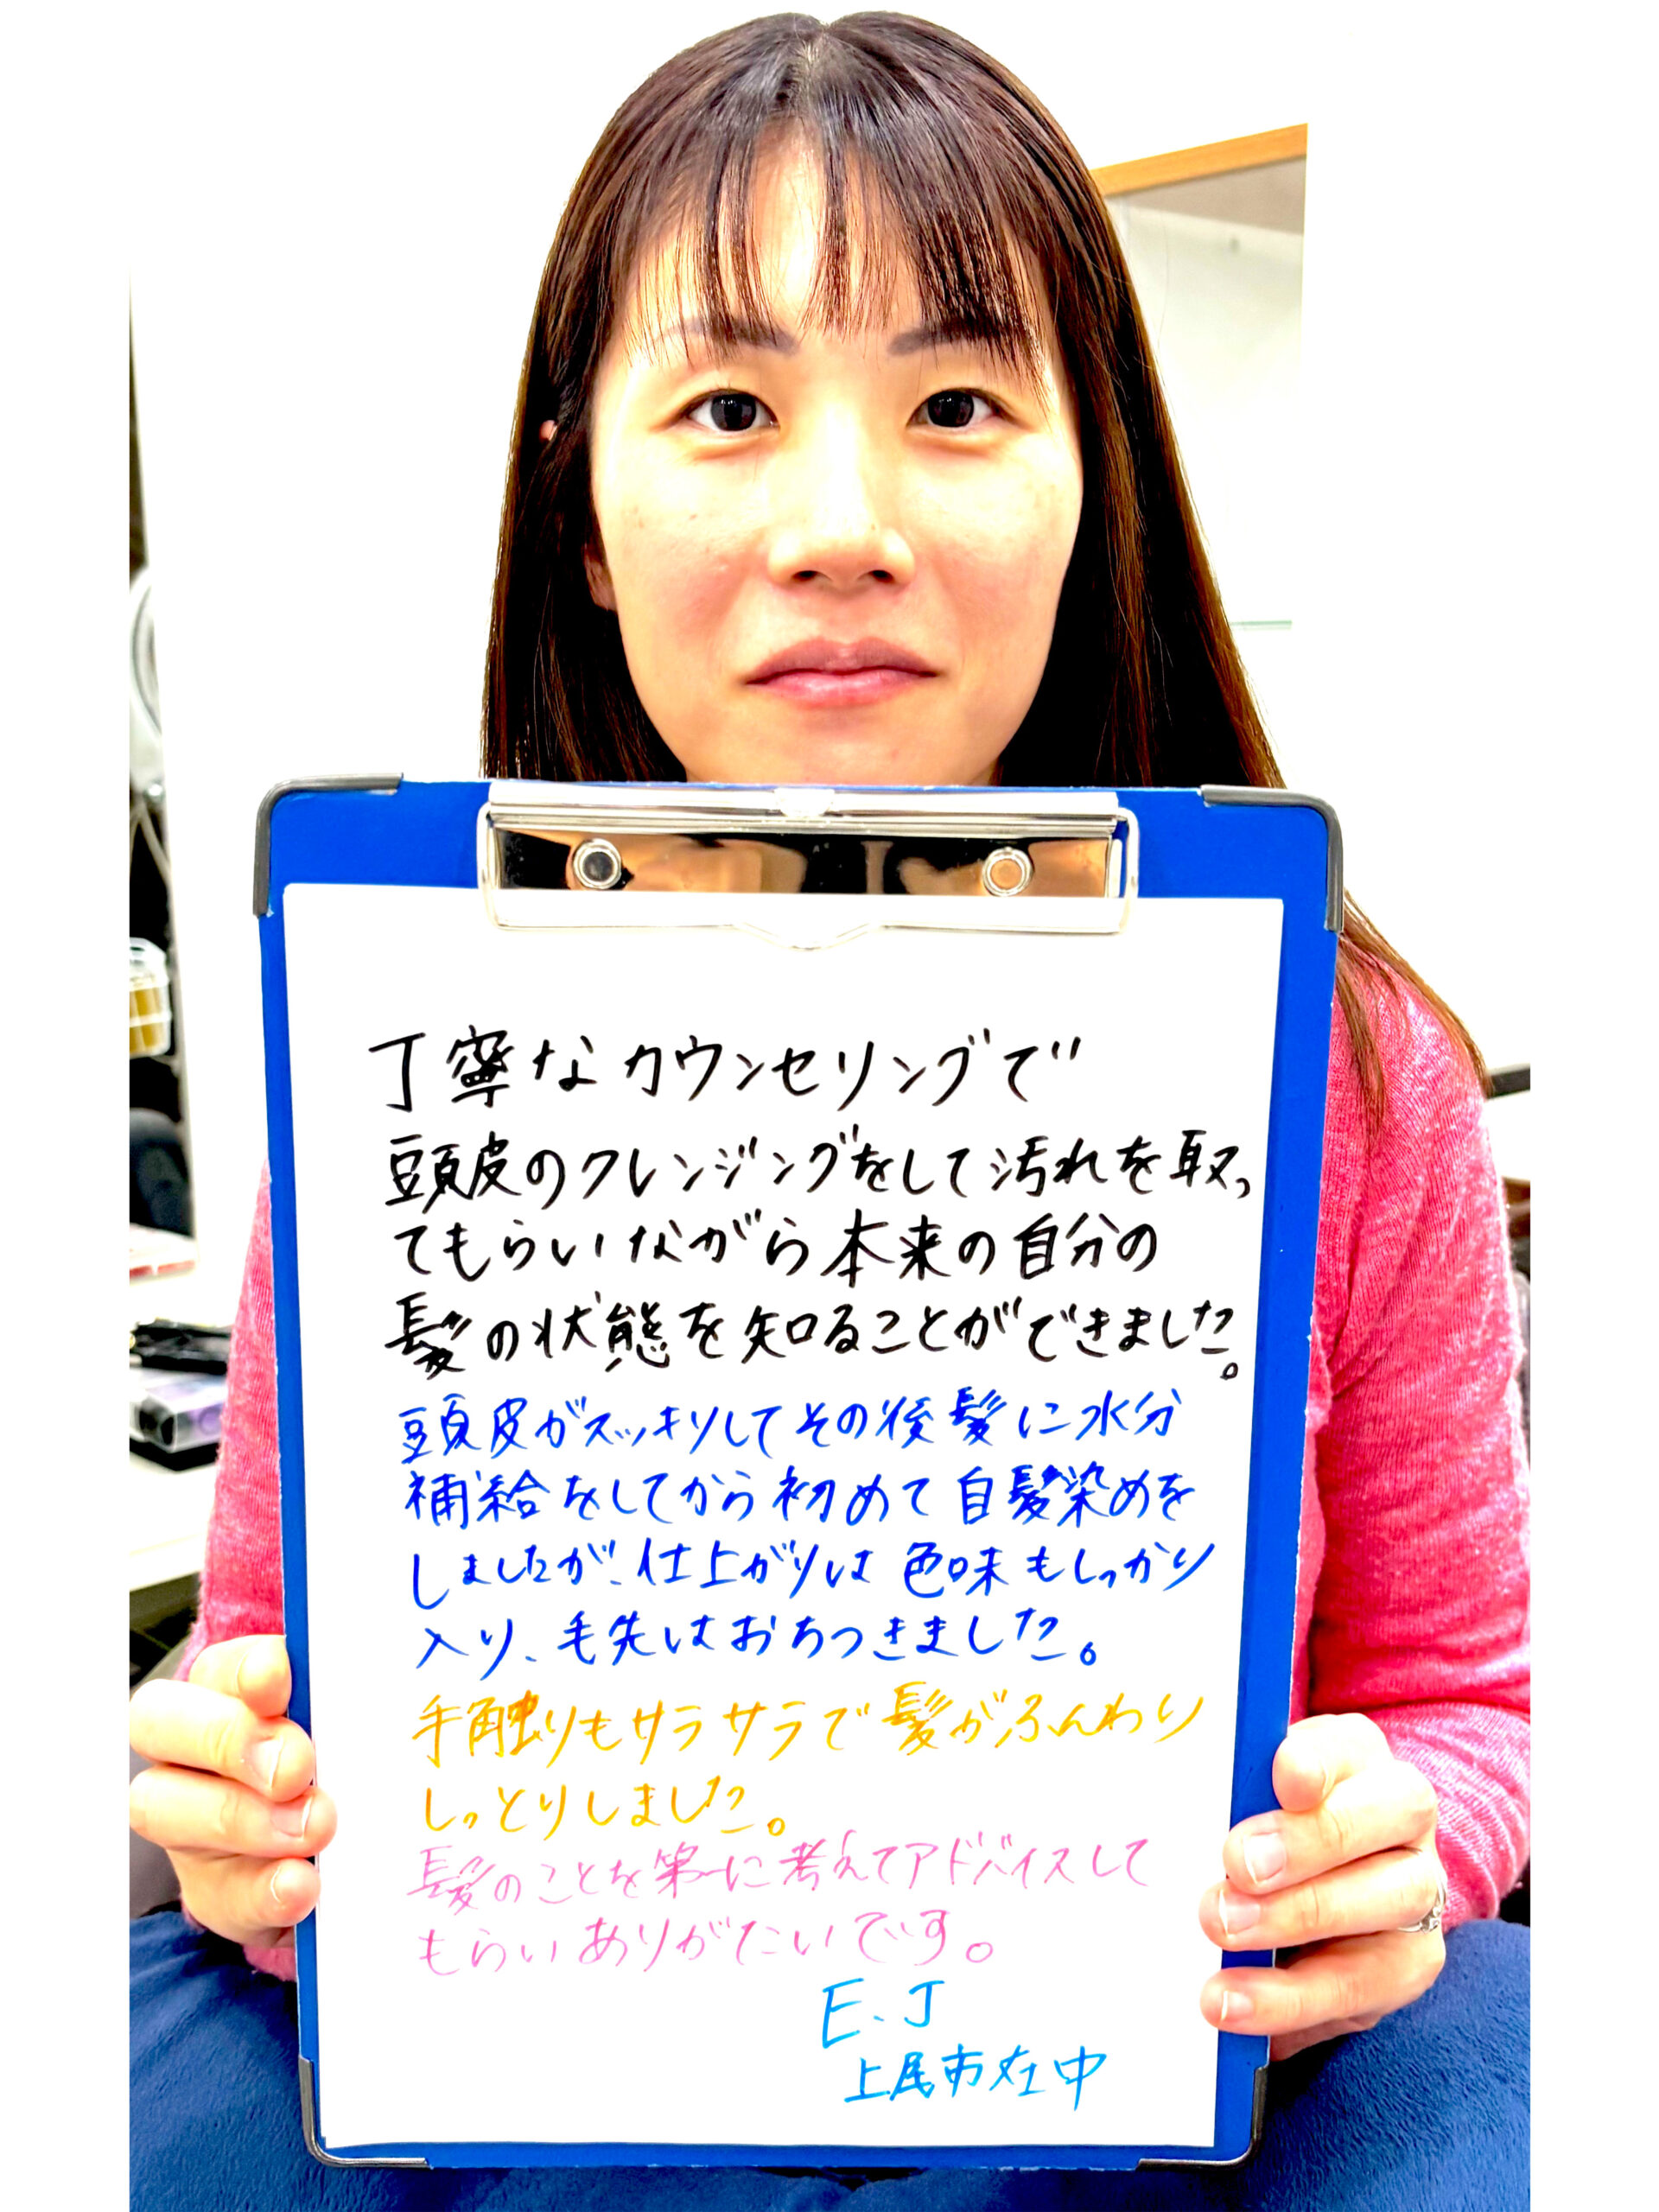 丁寧なカウンセリングで
頭皮のクレンジングをして汚れを取っ
てもらいながら本来の自分の
髪の状態を知ることができました。
頭皮がスッキリしてその後髪に水分
補給をしてから初めて自髪染めを
しましたが、仕上がりは色味もしっかり
入り、毛先はおちつきました。
手触りもサラサラで髪がふんわり
しっとりしました。
髪のことを第一に考えてアドバイスして
もらいありがたいです。
E、J
上尾市在中